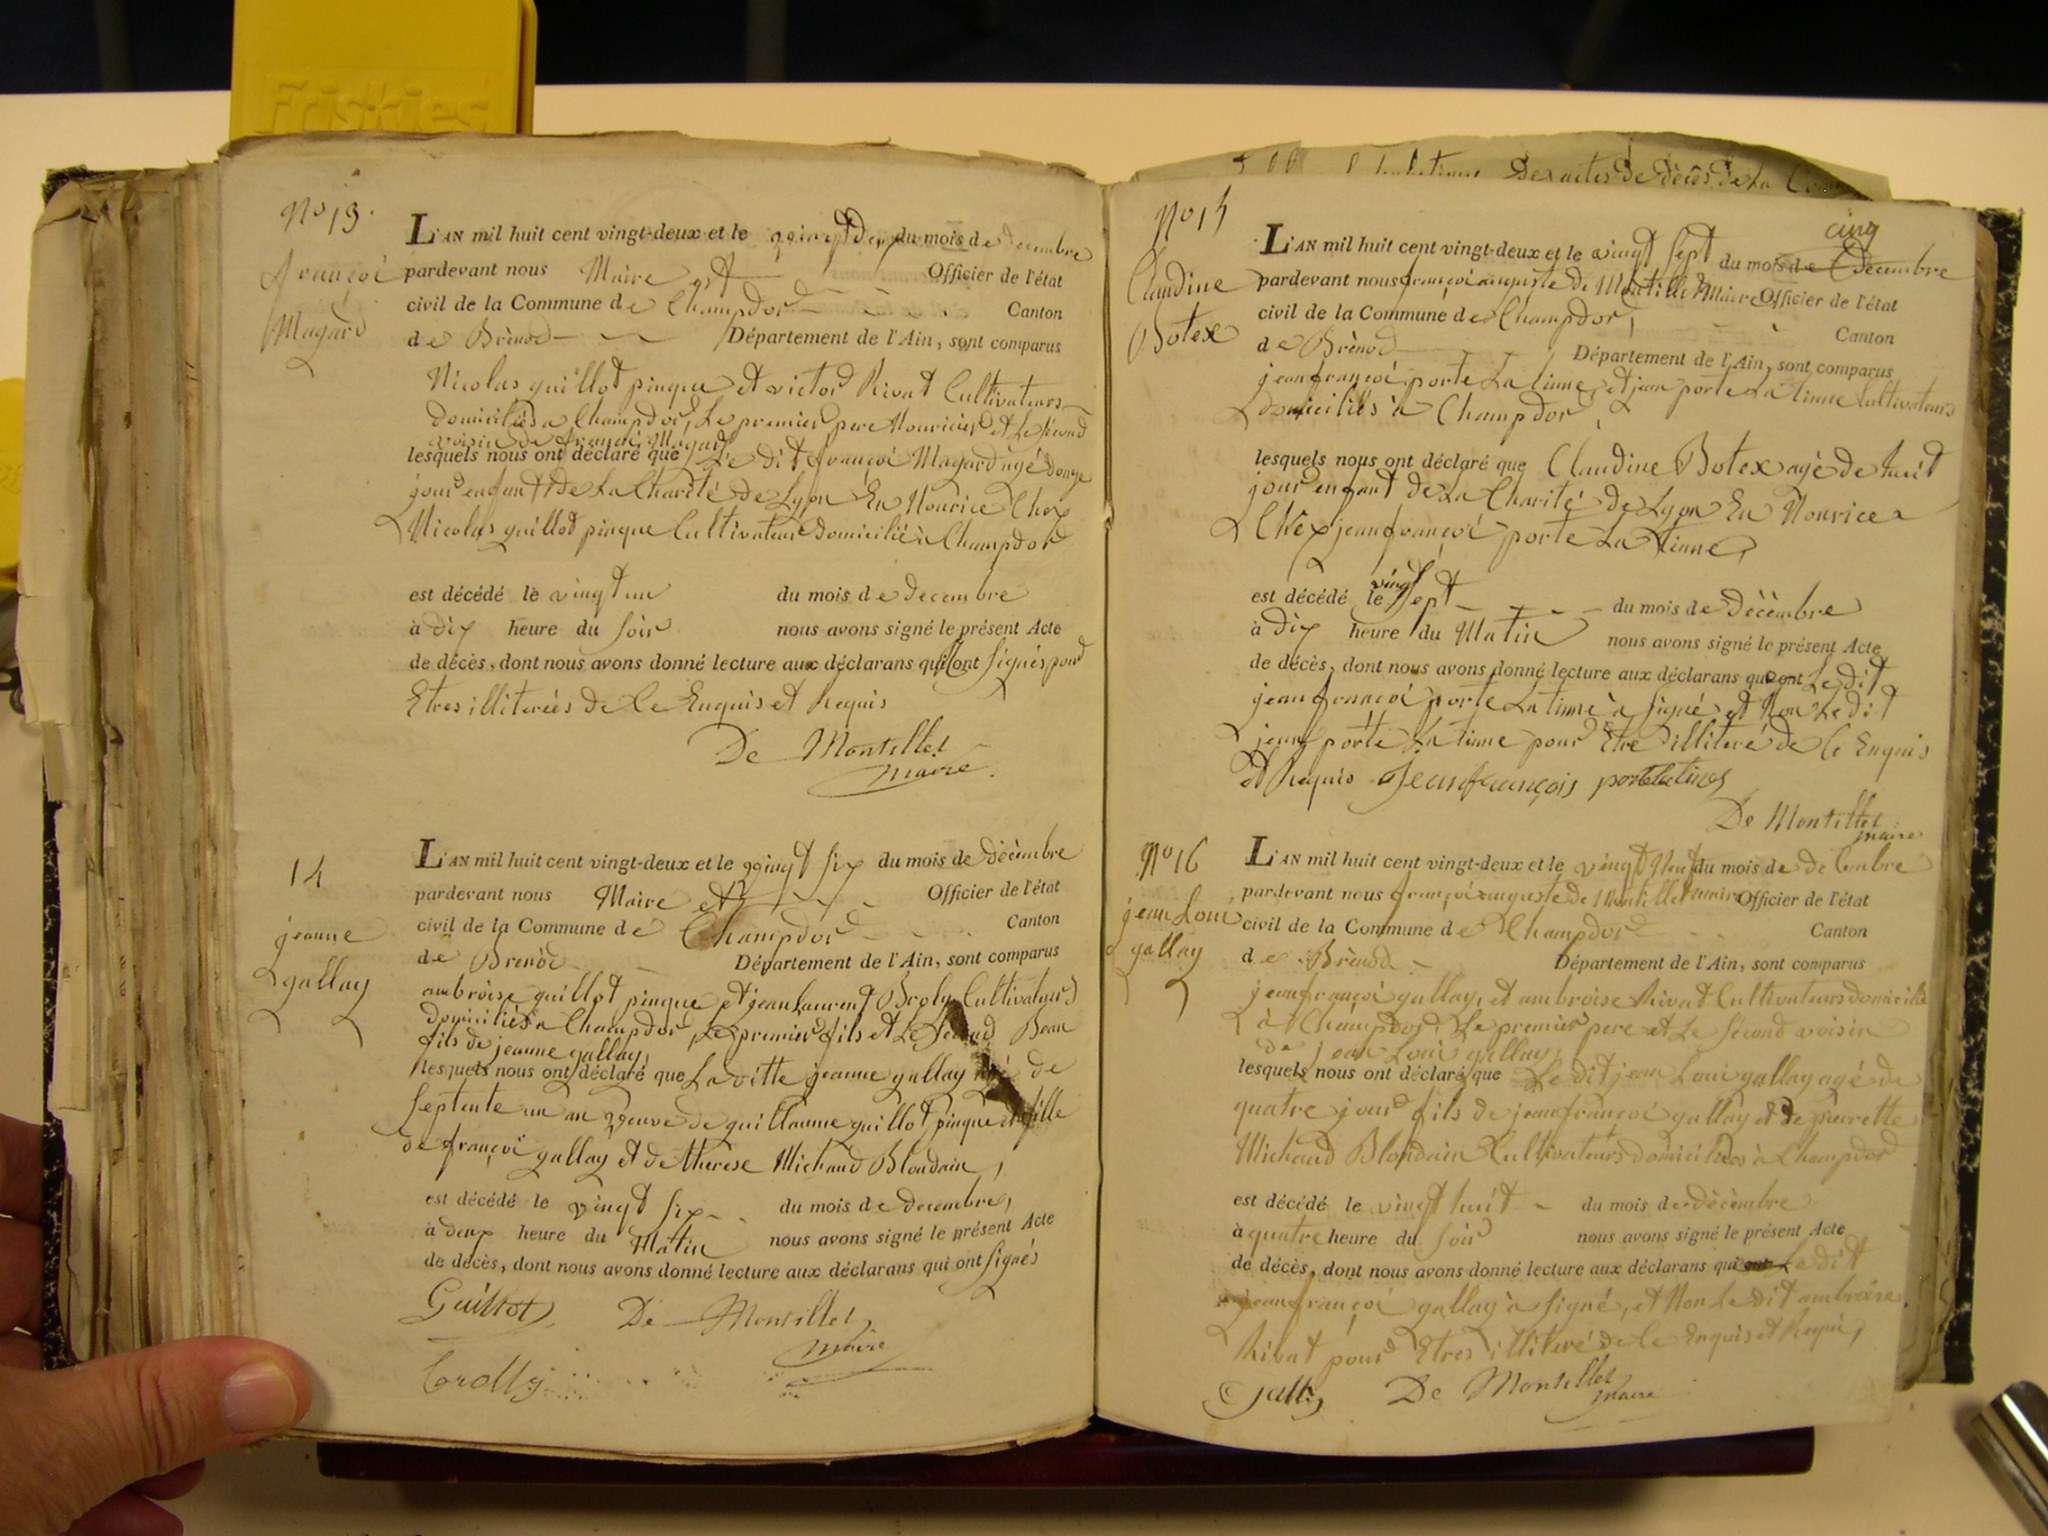 Friskies
No 13.
françoi
Magard
L'AN mil huit cent vingt-deux et le vingt deux du mois de decembre
pardevant nous Maire et Officier de l'état
civil de la Commune de Champdor Canton
de Brènod Département de l'Ain, sont comparus
Nicolas guillot pinque et victor Rivat Cultivateurs
domiciliés a Champdor, Le premier pere Nouricier et Le second
voisin de françoi Magard
lesquels nous ont déclaré que Le dit françoi Magard agé donze
jour enfant de La Charité de Lyon En Nourice Chez
Nicolas guillot pinque Cultivateur domicilié à Champdor
est décédé le vingt un du mois de decembre
à dix heure du soir nous avons signé le présent Acte
de décès, dont nous avons donné lecture aux déclarans qui ont signés pour
Etres illiterées de Ce Enquis et Requis
De Montillet
maire
14
jeanne
gallay
L'AN mil huit cent vingt-deux et le vingt six du mois de dècèmbre
pardevant nous Maire et Officier de l'état
civil de la Commune de Champdor Canton
de Brenod Département de l'Ain, sont comparus
ambroise guillot pinque et jean Laurent Broly Cultivateurs
domiciliés a Champdor, Le premier fils et Le second Beau
fils de jeanne gallay,
lesquels nous ont déclaré que La ditte jeanne gallay agé de
septente un an veuve de guillaume guillot pinque et fille
de françoi gallay et de thérèse Michaud Blondain,
est décédé le vingt six du mois de decembre,
à deux heure du Matin nous avons signé le présent Acte
de décès, dont nous avons donné lecture aux déclarans qui ont signés
Guillot De Montillet
maire
Brolly
des actes de décès de La
No 15
Claudine
Botex
cinq
L'AN mil huit cent vingt-deux et le vingt sept du mois de decembre
pardevant nous françoi auguste de Montillet Maire Officier de l'état
civil de la Commune de Champdor, Canton
de Brènod Département de l'Ain, sont comparus
jean françoi porte La tinne, et jean porte La tinne Cultivateurs
domiciliés à Champdor,
lesquels nous ont déclaré que Claudine Botex agé de huit
jour enfant de La Charité de Lyon En Nourice
Chéz jean françoi porte La tinne,
est décédé le vingt sept du mois de dècèmbre
à dix heure du Matin nous avons signé le présent Acte
de décès, dont nous avons donné lecture aux déclarans qui ont Le dit
jean françoi porte La tinne à signé et Non Le dit
jean porte La tinne pour Etre illiteré de Ce Enquis
et Requis Jean françois portelatinne
De Montillet
maire
No 16
jean Loui
gallay
L'AN mil huit cent vingt-deux et le vingt Neuf du mois de deCembre
pardevant nous françoi auguste de Montillet maire Officier de l'état
civil de la Commune de Champdor Canton
de Brènod Département de l'Ain, sont comparus
jean françoi gallay, et ambroise Rivat Cultivateurs domicilié
à Champdor, Le premier pere et Le second voisin
de jean Loui gallay,
lesquels nous ont déclaré que Le dit jean Loui gallay agé de
quatre jour fils de jean françoi gallay et de pierrette
Michaud Blondain Cultivateurs domiciliées à Champdor
est décédé le vingt huit du mois de dècèmbre
à quatre heure du soir nous avons signé le présent Acte
de décès, dont nous avons donné lecture aux déclarans qui ont Le dit
jean françoi gallay à signé, et Non Le dit ambroise
Rivat pour Etres illiteré de Ce Enquis et Requi,
De Montillet
maire